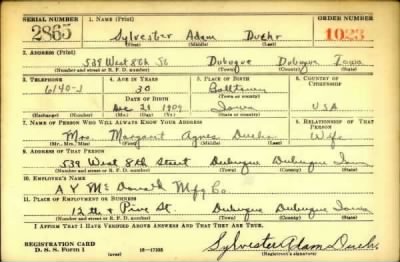 SERIAL NUMBER 1. NAME (Print) ORDER NUMBER
2865 Sylvester Adam Duehr 1023
(First) (Middle) (Last)
2. ADDRESS (Print)
539 West 8th St Dubuque Dubuque Iowa
(Number and street or R. F. D. number) (Town) (County) (State)
3. TELEPHONE 4. AGE IN YEARS 5. PLACE OF BIRTH 6. COUNTRY OF CITIZENSHIP
6140-J 30
DATE OF BIRTH (Town or county)
Dec 21 1909 Iowa USA
(Exchange) (No.) (Mo.) (Day) (Yr.) (State or country)
7. NAME OF PERSON WHO WILL ALWAYS KNOW YOUR ADDRESS 8. RELATIONSHIP OF THAT PERSON
Mrs. Margaret Agnes Duehr Wife
(Mr., Mrs., Miss) (First) (Middle) (Last)
9. ADDRESS OF THAT PERSON
539 West 8th Street Dubuque Dubuque Iowa
(Number and street or R. F. D. number) (Town) (County) (State)
10. EMPLOYER'S NAME
A Y McDonald Mfg Co
11. PLACE OF EMPLOYMENT OR BUSINESS
12th & Pine St. Dubuque Dubuque Iowa
(Number and street or R. F. D. number) (Town) (County) (State)
I AFFIRM THAT I HAVE VERIFIED ABOVE ANSWERS AND THAT THEY ARE TRUE.
REGISTRATION CARD
D. S. S. Form 1 (over) Sylvester Adam Duehr
(Registrant's signature)